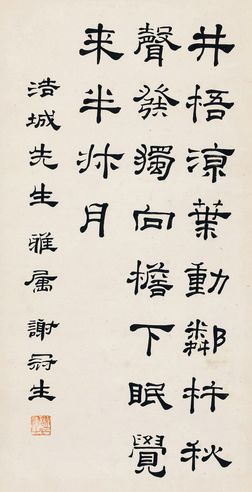 井梧涼葉動鄰杵秋
聲發獨向檐下眠覺
来半牀月
浩城先生雅属 謝冠生